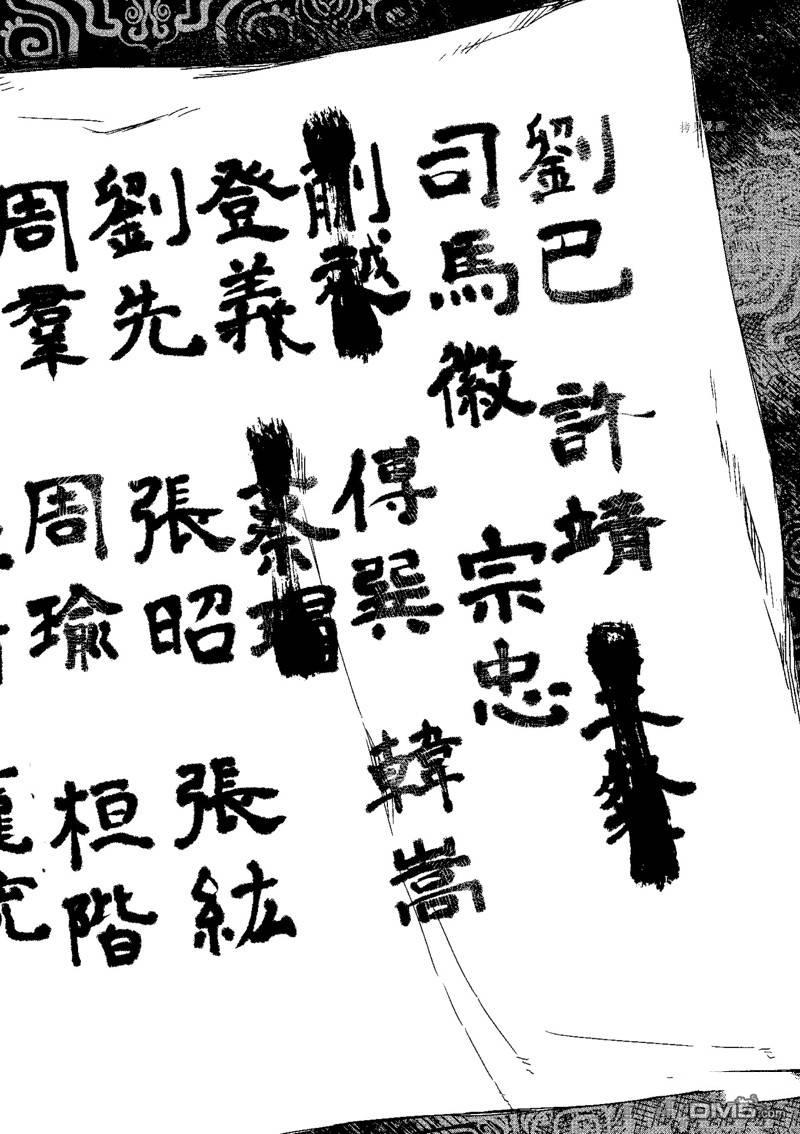 劉巴
許靖
司馬徽
宗忠
蒯越
傅巽
韓嵩
登義
蔡瑁
劉先
張昭
張紘
周羣
周瑜
桓階
拷贝漫画